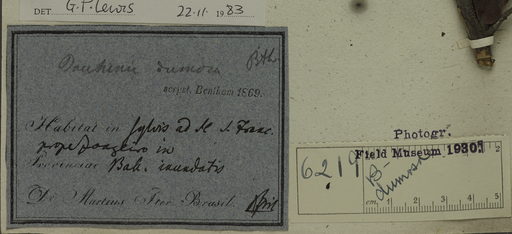 DET. G.P. Lewis 22.11. 1983
Bauhinia dumosa Bth.
script. Bentham 1869.
Habitat in sylvis ad fl. S. Franc.
prope Joazeiro in
Provinciae Bah. inundatis
Dr. Martius Iter Brasil. April
Photogr.
Field Museum 1930?
6219
B.
dumosa
cm. 1 2 3 4 5